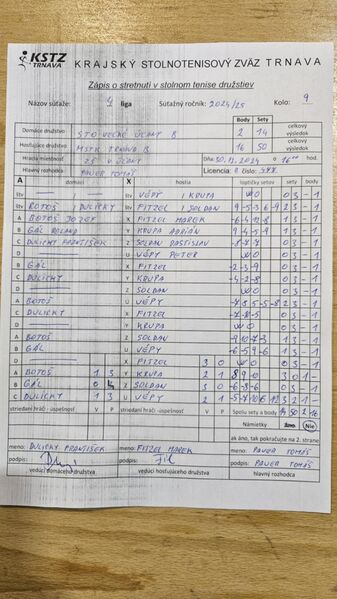 KSTZ TRNAVA KRAJSKÝ STOLNOTENISOVÝ ZVÄZ TRNAVA
Zápis o stretnutí v stolnom tenise družstiev
Názov súťaže: liga Súťažný ročník: 2024/25 Kolo: 9
Body Sety
Domáce družstvo STO VEĽKÉ ÚĽANY B 2 14 celkový výsledok
Hosťujúce družstvo MSTK TRNAVA B 16 50 celkový výsledok
Hracia miestnosť ZŠ V. ÚĽANY Dňa: 2024 o 16 hod.
Hlavný rozhodca PAVER TOMÁŠ číslo:
domáci X hostia loptičky setov sety
štv VÉPY / KRUPA WO 0 3 - 1
štv BOTOŠ / DULICKY FITZEL / SOLDAN 2 3 - 1
A BOTOŠ JOZEF X FITZEL MAREK 0 3 - 1
B GÁL ROLAND Y KRUPA ADRIÁN 0 3 - 1
C DULICKÝ FRANTIŠEK Z SOLDAN RASTISLAV -8-7-7 0 3 - 1
D U VÉPY PETER WO 0 3 - 1
B GÁL X FITZEL -2-3-9 0 3 - 1
C DULICKÝ Y KRUPA -4-2-8 0 3 - 1
D Z SOLDAN WO 0 3 - 1
A BOTOŠ U VÉPY 2 3 - 1
C DULICKÝ X FITZEL 0 3 - 1
D Y KRUPA WO 0 3 - 1
A BOTOŠ Z SOLDAN 1 3 - 1
B GÁL U VÉPY 1 3 - 1
D X FITZEL 3 0 WO 0 3 - 1
A BOTOŠ 1 3 Y KRUPA 2 1 8 9 10 3 0 1 -
B GÁL 0 4 Z SOLDAN 3 0 -6-3-6 0 3 - 1
C DULICKÝ 1 3 U VÉPY 2 1 3 2 1 -
striedaní hráči - úspešnosť V P striedaní hráči - úspešnosť V P Spolu sety a body 14 50 2 16
Námietky Áno Nie
ak áno, tak pokračujte na 2. strane
meno: DULICKY FRANTIŠEK meno: FITZEL MAREK meno: PAVER TOMÁŠ
podpis: podpis: podpis: PAVER TOMÁŠ
vedúci domáceho družstva vedúci hosťujúceho družstva hlavný rozhodca